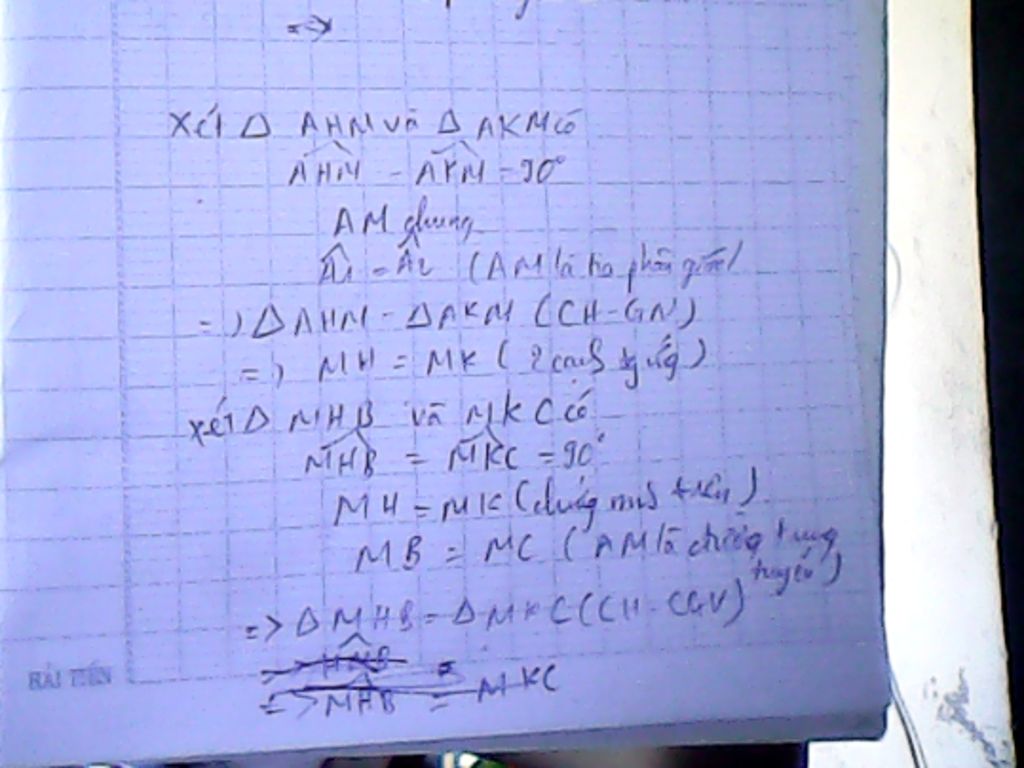 =>
Xét Δ AHM và Δ AKM có
AHM = AKM = 90°
AM chung
Â1 = Â2 (AM là tia phân giác)
=> Δ AHM = Δ AKM (CH-GN)
=> MH = MK (2 cạnh tg ứng)
Xét Δ MHB và MKC có
MHB = MKC = 90°
MH = MK (chứng minh trên)
MB = MC (AM là đường trung
tuyến)
=> Δ MHB = Δ MKC (CH-CGV)
=> MHB = MKC
HẢI TIẾN